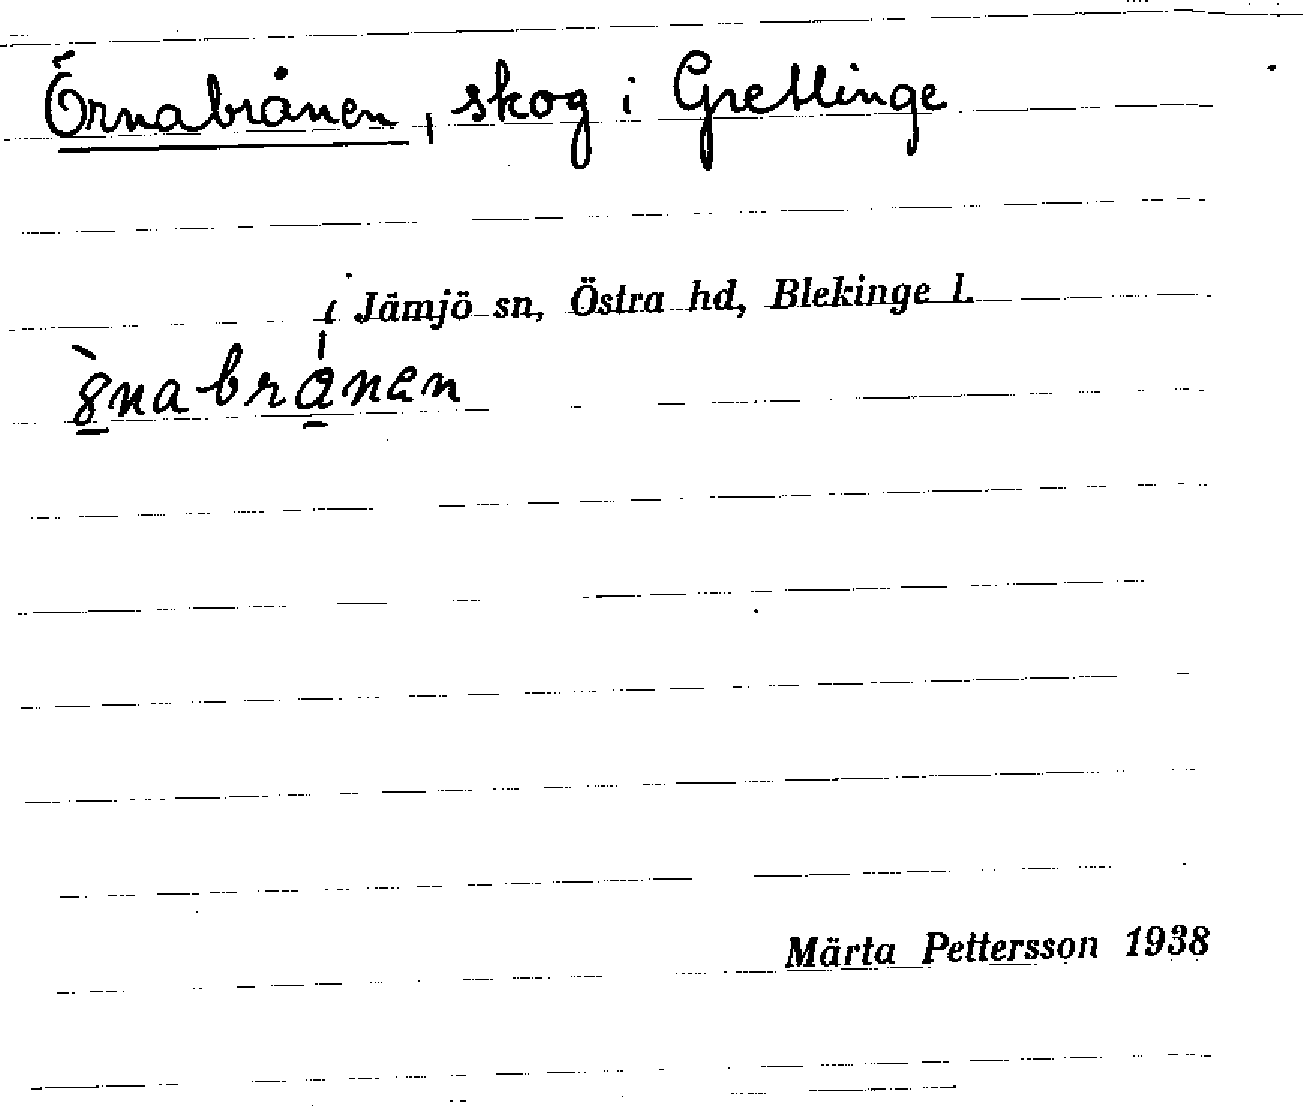 Örnabrånen, skog i Grettlinge
i Jämjö sn, Östra hd, Blekinge l.
Märta Pettersson 1938